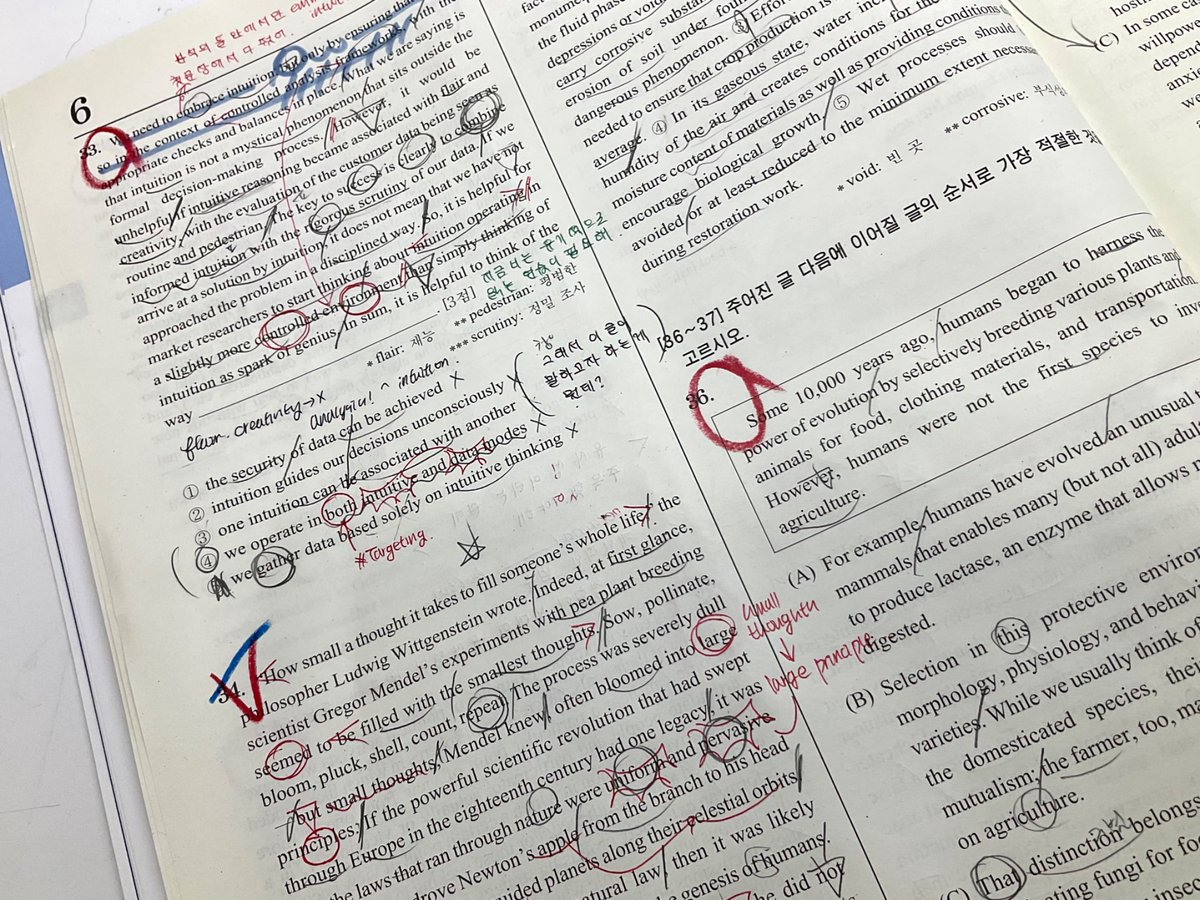 6
33. We need to embrace intuition but only by ensuring that we do
so in the context of controlled analysis frameworks, with the
appropriate checks and balances in place. What we are saying is
that intuition is not a mystical phenomenon that sits outside the
formal decision-making process. However, it would be
unhelpful if intuitive reasoning became associated with flair and
creativity, with the evaluation of the customer data being seen as
routine and pedestrian. The key to success is clearly to combine
informed intuition with the rigorous scrutiny of our data. If we
arrive at a solution by intuition, it does not mean that we have not
approached the problem in a disciplined way. So, it is helpful for
market researchers to start thinking about intuition operating in
a slightly more controlled environment than simply thinking of
intuition as spark of genius. In sum, it is helpful to think of the
way
[3점]
* flair: 재능
** pedestrian: 평범한
*** scrutiny: 정밀 조사
그래서 이 글이
말하고자 하는 게
뭔데?
flair. creativity → x
analysis! ^ intuition
① the security of data can be achieved x
② intuition guides our decisions unconsciously x
③ one intuition can be associated with another
④ we operate in both intuitive and data modes x
we gather data based solely on intuitive thinking x
*Targeting.
34. How small a thought it takes to fill someone's whole life, the
philosopher Ludwig Wittgenstein wrote. Indeed, at first glance,
scientist Gregor Mendel's experiments with pea plant breeding
seemed to be filled with the smallest thoughts. Sow, pollinate,
bloom, pluck, shell, count, repeat. The process was severely dull
but small thoughts, Mendel knew, often bloomed into large
principles; If the powerful scientific revolution that had swept
through Europe in the eighteenth century had one legacy, it was
the laws that ran through nature were uniform and pervasive
drove Newton's apple from the branch to his head
guided planets along their celestial orbits
natural law, then it was likely
the genesis of humans.
he did not
small
thoughts
↓
large principle
the fluid phase
depressions or void
carry corrosive substan
erosion of soil under foun
dangerous phenomenon. ③ Effor
needed to ensure that crop production is
average. ④ In its gaseous state, water incr
humidity of the air and creates conditions for the
moisture content of materials as well as providing conditions
encourage biological growth. ⑤ Wet processes should
avoided or at least reduced to the minimum extent necess
during restoration work.
* void: 빈 곳
** corrosive: 부식성
[36~37] 주어진 글 다음에 이어질 글의 순서로 가장 적절한 것
고르시오.
36.
Some 10,000 years ago, humans began to harness the
power of evolution by selectively breeding various plants and
animals for food, clothing materials, and transportation
However, humans were not the first species to inv
agriculture.
(A) For example, humans have evolved an unusual
mammals that enables many (but not all) adul
to produce lactase, an enzyme that allows
digested.
(B) Selection in this protective environ
morphology, physiology, and behav
varieties. While we usually think of
the domesticated species, the
mutualism: the farmer, too, mi
on agriculture.
(C) That distinction belongs
ating fungi for fo
hosti
(C) In some ca
willpow
depen
anxi